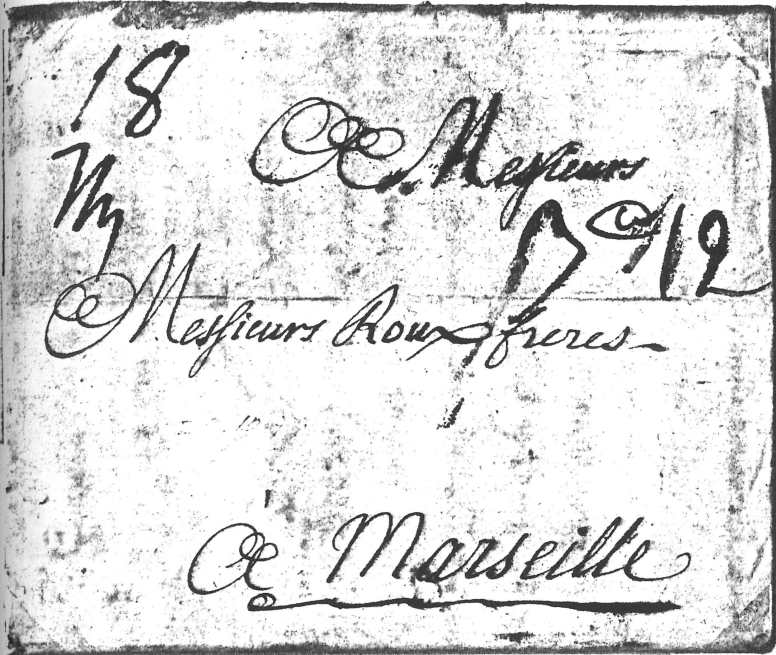 18
A Messieurs
12
A Messieurs Roux freres
A Marseille